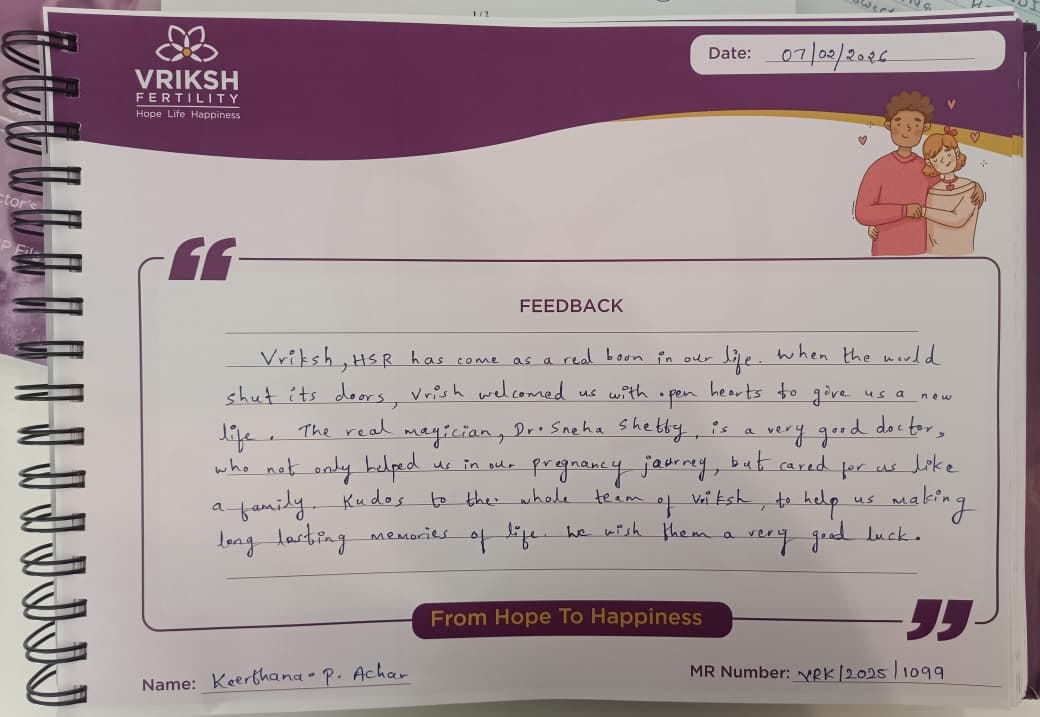 VRIKSH
FERTILITY
Hope Life Happiness
Date: 07/02/2026
FEEDBACK
Vriksh, HSR has come as a real boon in our life. When the world
shut its doors, Vrish welcomed us with open hearts to give us a new
life. The real magician, Dr. Sneha Shetty, is a very good doctor,
who not only helped us in our pregnancy jaurney, but cared for us like
a family. Kudos to the whole team of Vriksh, to help us making
long lasting memories of life. We wish them a very good luck.
From Hope To Happiness
Name: Keerthana P. Achar
MR Number: VRK/2025/1099